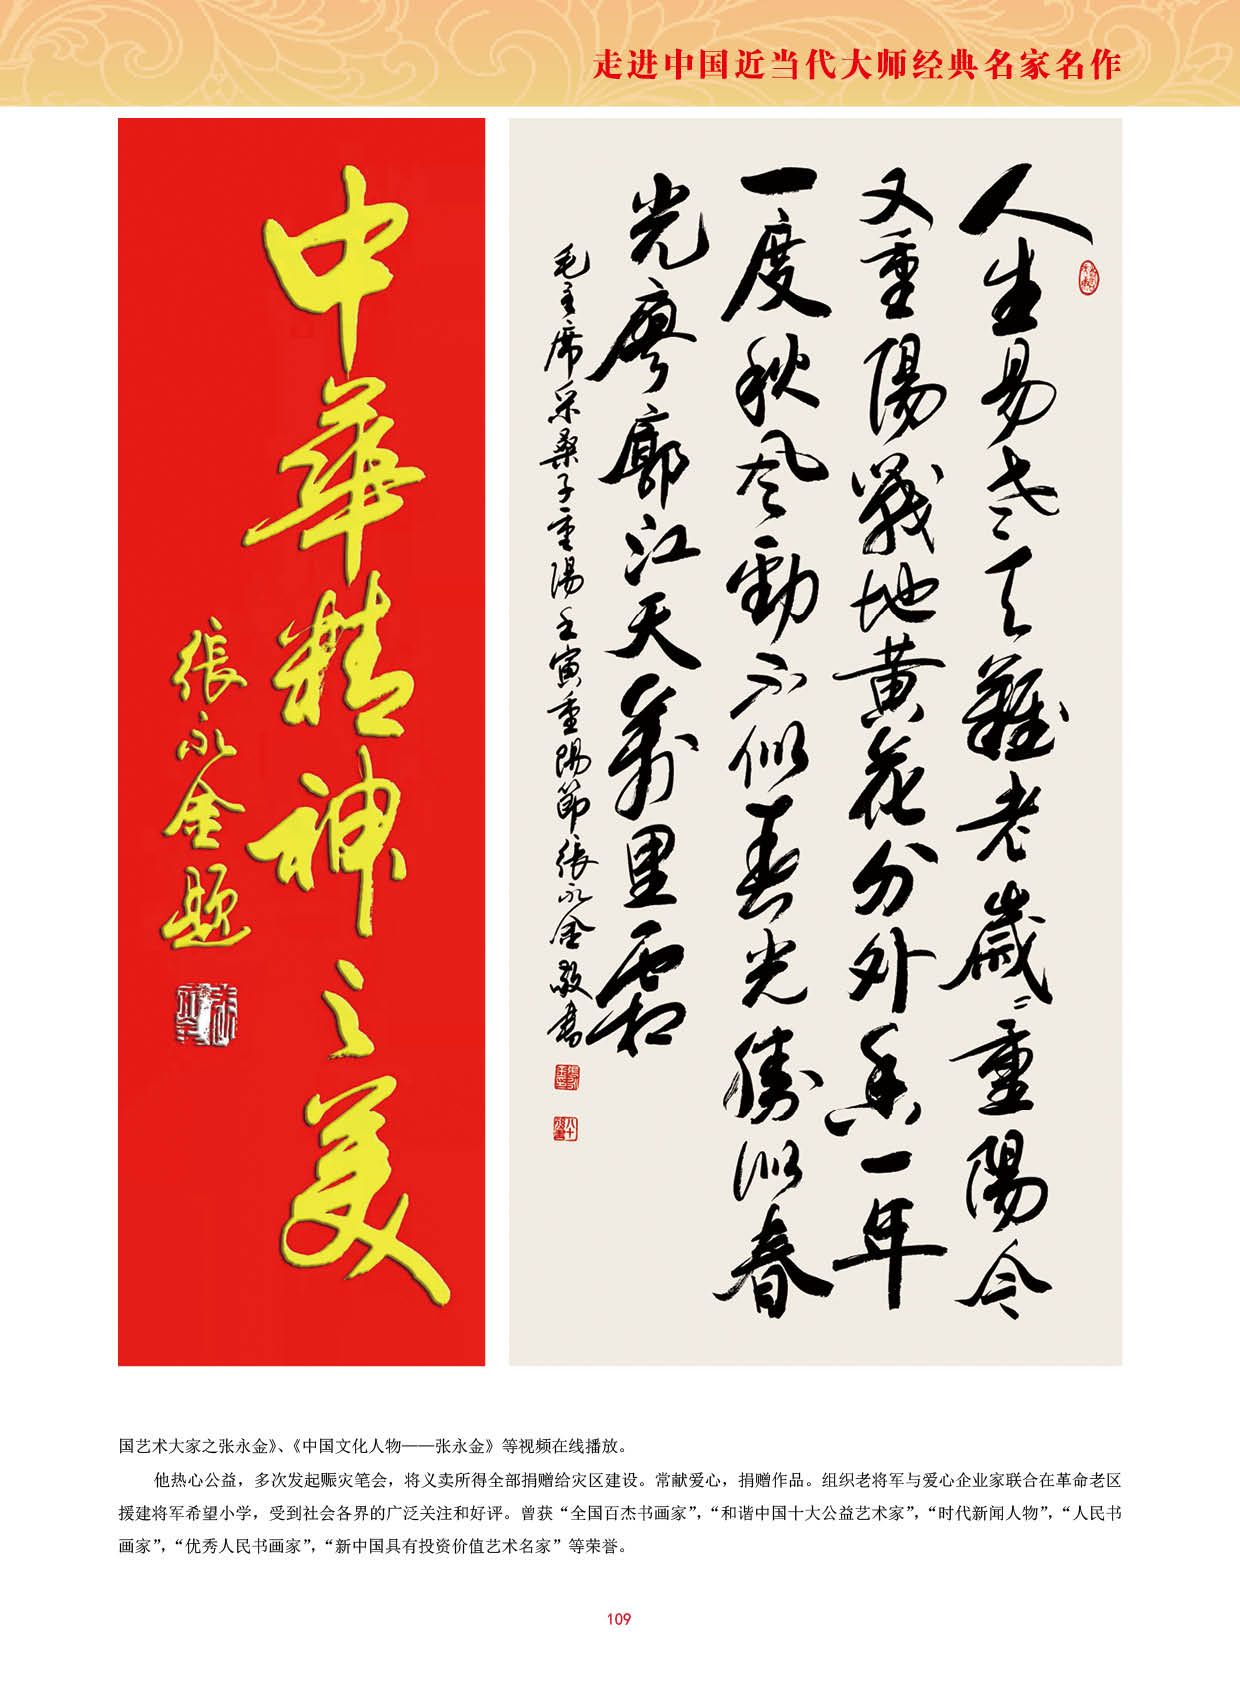 走进中国近当代大师经典名家名作
中華精神之美
張永金題
人生易老天難老歲〻重陽今
又重陽戰地黄花分外香一年
一度秋風勁不似春光勝似春
光廖廓江天萬里霜
毛主席采桑子重陽壬寅重陽節張永金敬書
国艺术大家之张永金》、《中国文化人物——张永金》等视频在线播放。
他热心公益，多次发起赈灾笔会，将义卖所得全部捐赠给灾区建设。常献爱心，捐赠作品。组织老将军与爱心企业家联合在革命老区
援建将军希望小学，受到社会各界的广泛关注和好评。曾获“全国百杰书画家”，“和谐中国十大公益艺术家”，“时代新闻人物”，“人民书
画家”，“优秀人民书画家”，“新中国具有投资价值艺术名家”等荣誉。
109